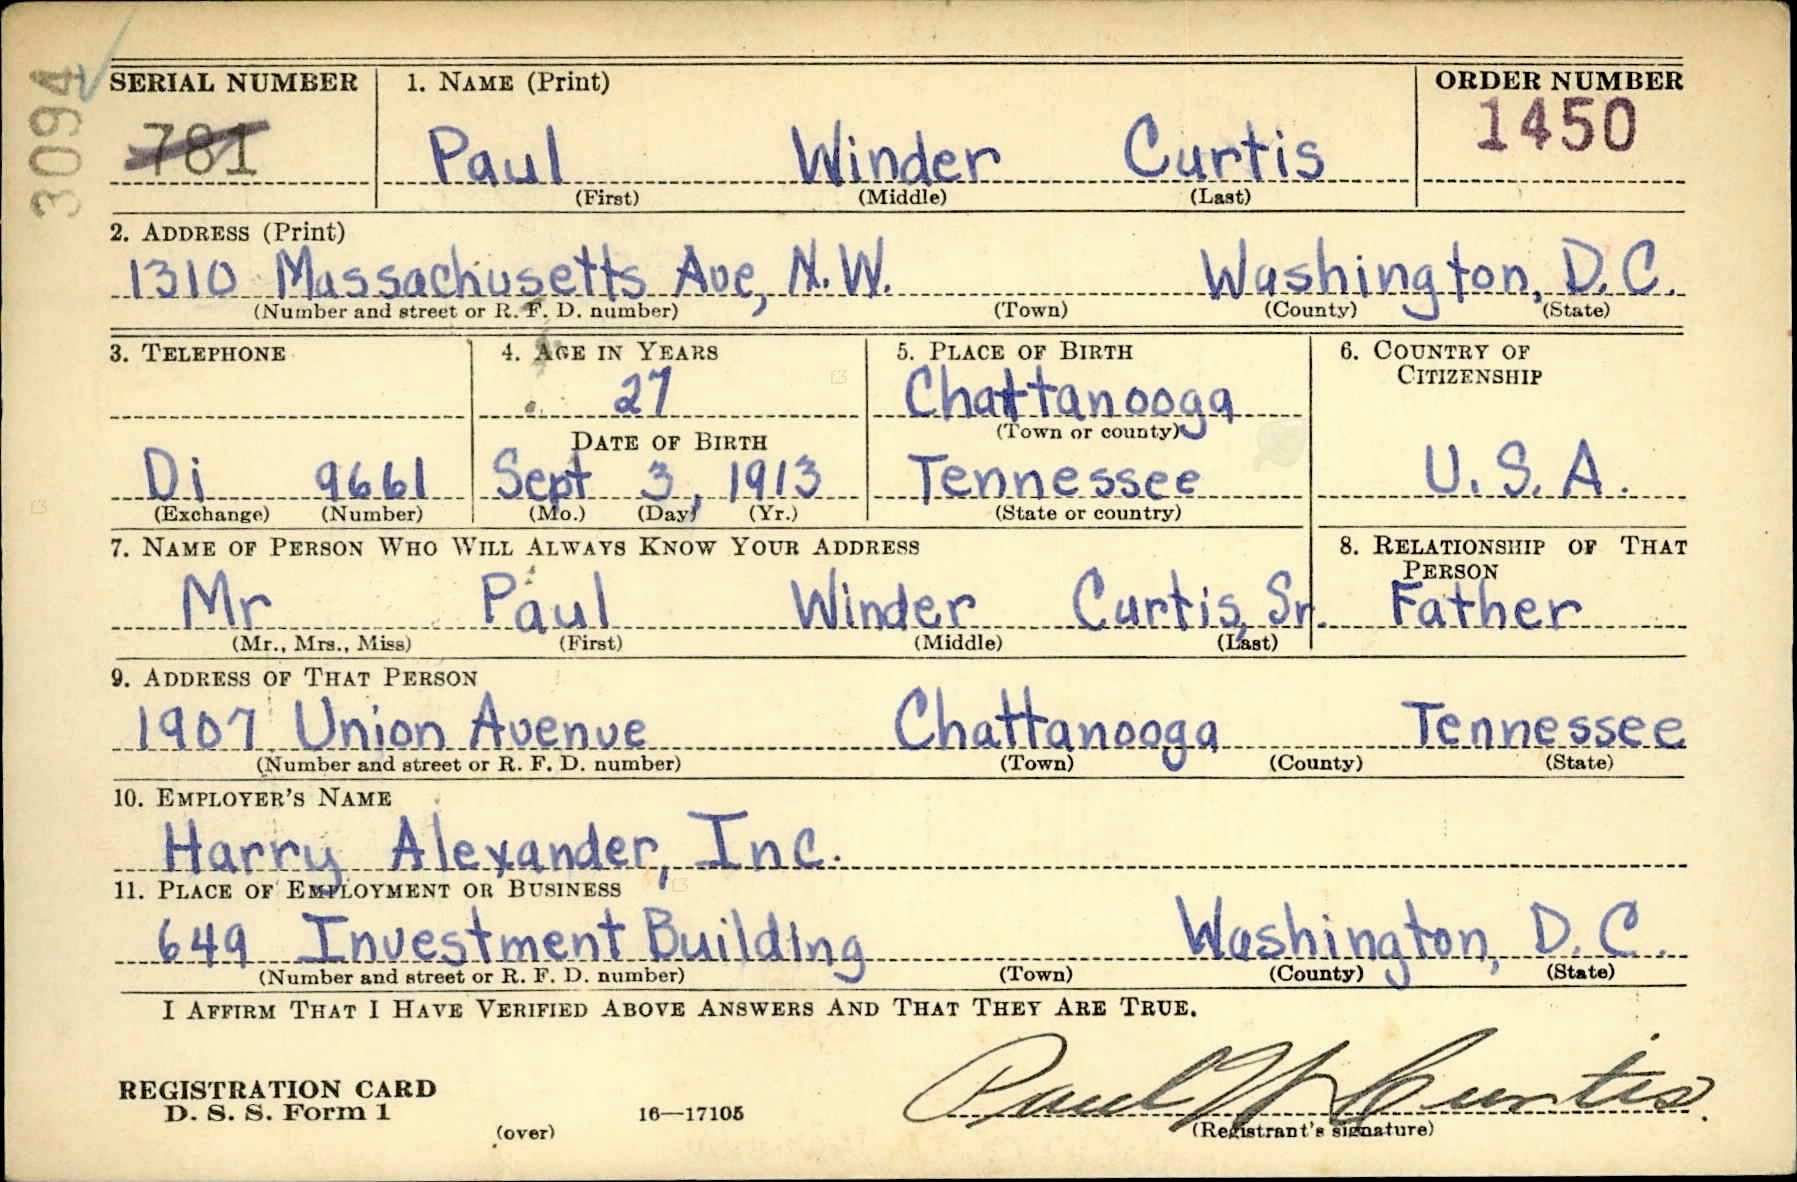 3094
SERIAL NUMBER
781
1. NAME (Print)
ORDER NUMBER
1450
Paul Winder Curtis
(First) (Middle) (Last)
2. ADDRESS (Print)
1310 Massachusetts Ave, N.W. Washington, D.C.
(Number and street or R. F. D. number) (Town) (County) (State)
3. TELEPHONE
Di 9661
(Exchange) (Number)
4. AGE IN YEARS
27
DATE OF BIRTH
Sept 3, 1913
(Mo.) (Day) (Yr.)
5. PLACE OF BIRTH
Chattanooga
(Town or county)
Tennessee
(State or country)
6. COUNTRY OF
CITIZENSHIP
U.S.A.
7. NAME OF PERSON WHO WILL ALWAYS KNOW YOUR ADDRESS
Mr Paul Winder Curtis, Sr.
(Mr., Mrs., Miss) (First) (Middle) (Last)
8. RELATIONSHIP OF THAT
PERSON
Father
9. ADDRESS OF THAT PERSON
1907 Union Avenue Chattanooga Tennessee
(Number and street or R. F. D. number) (Town) (County) (State)
10. EMPLOYER'S NAME
Harry Alexander, Inc.
11. PLACE OF EMPLOYMENT OR BUSINESS
649 Investment Building Washington, D.C.
(Number and street or R. F. D. number) (Town) (County) (State)
I AFFIRM THAT I HAVE VERIFIED ABOVE ANSWERS AND THAT THEY ARE TRUE.
Paul W Curtis.
(Registrant's signature)
REGISTRATION CARD
D. S. S. Form 1
16—17105
(over)